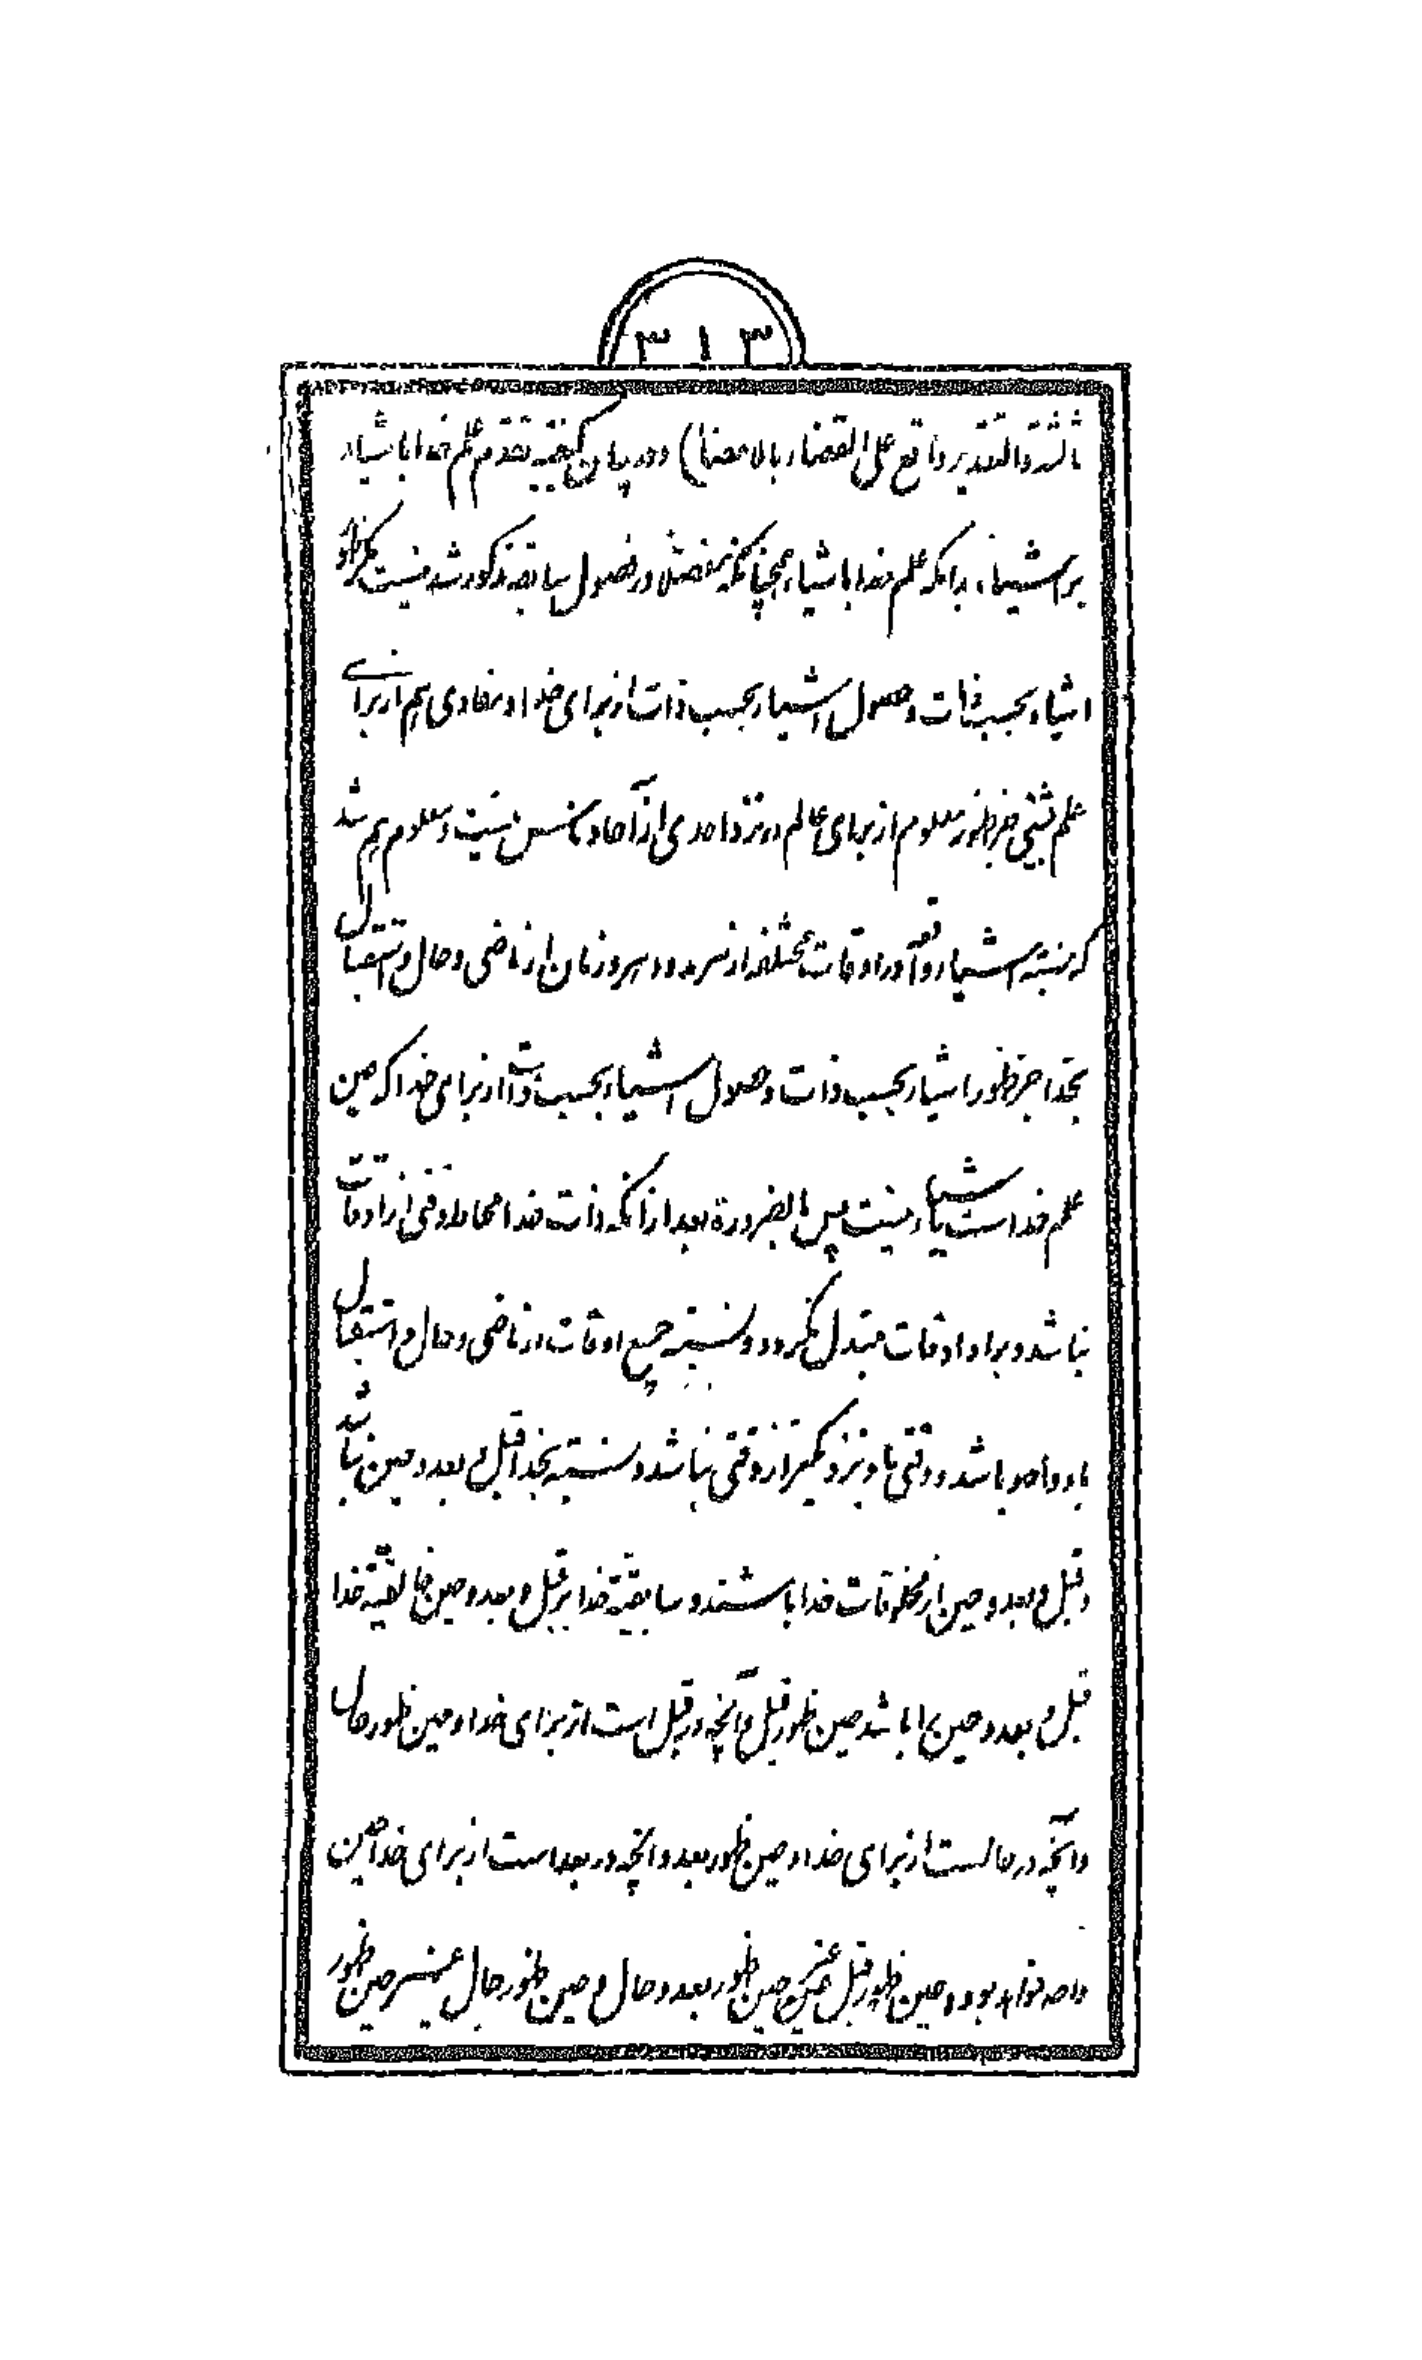 ۳۱۳
ثالثة والتقدیر واقع علی القضاء بالامضا) و در بیان کیفیة تقدم علم خدا باشیاء
بر اشیاء، بدانکه علم خدا باشیاء همچنانکه مفصلا در فصول سابقه مذکور شد نیست مگر ظهور
اشیاء بحسب ذات و حصول اشیاء بحسب ذات از برای خدا و مفادی هم از برای
علم بشیئی جز ظهور معلوم از برای عالم در نزد احدی از آحاد ناس نیست و معلوم هم شد
که نسبة اشیاء واقعه در اوقات مختلفه از سرمد و دهر و زمان از ماضی و حال و استقبال
بخدا جز ظهور اشیاء بحسب ذات و حصول اشیاء بحسب ذات از برای خدا که عین
علم خداست باشیاء نیست پس بالضرورة بعد از آنکه ذات خدا محاط وقتی از اوقات
نباشد و بر او اوقات متبدل نگردد و نسبة جمیع اوقات از ماضی و حال و استقبال
باو واحد باشد و وقتی باو نزدیکتر از وقتی نباشد و نسبة بخدا قبل و بعد و حین نباشد
و قبل و بعد و حین از مخلوقات خدا باشند و سابقیة خدا بر قبل و بعد و حین خالقیة خدا
قبل و بعد و حین را باشد حین ظهور قبل و آنچه در قبل است از برای خدا و حین ظهور حال
و آنچه در حالست از برای خدا و حین ظهور بعد و آنچه در بعد است از برای خدا حین
واحد خواهد بود و حین ظهور قبل عین حین ظهور بعد و حال و حین ظهور حال غیر حین ظهور